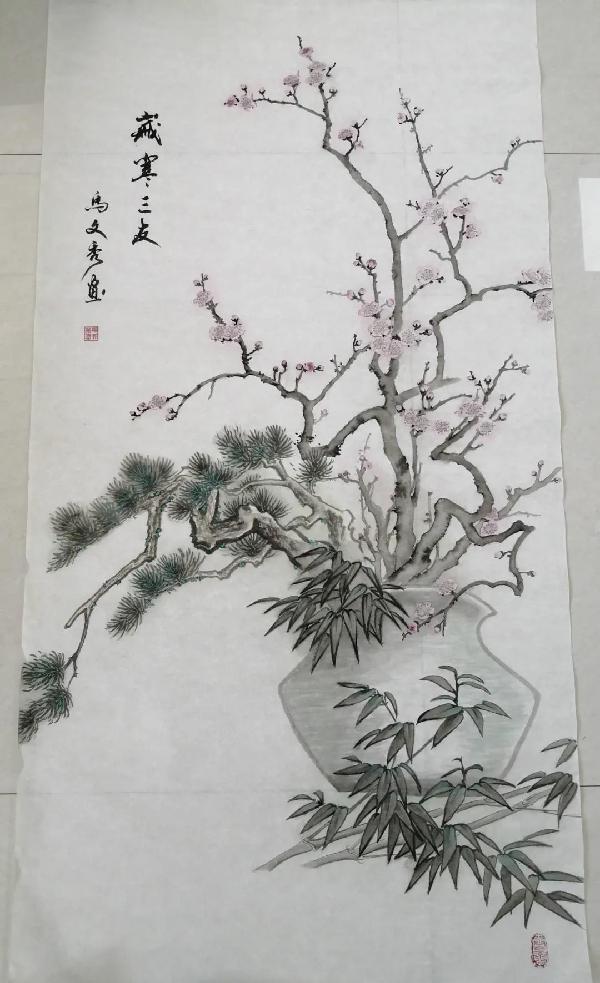 嵗寒三友
馬文秀畫